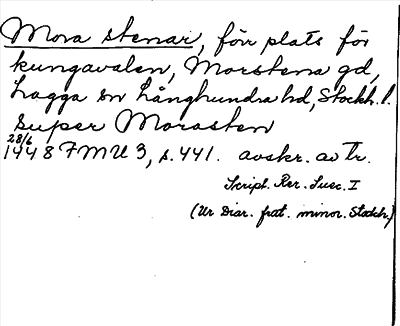 Mora stenar, förr plats för
kungavalen, Morstena gd,
Lagga sn Långhundra hd, Stockh. l.
super Morasten
28/6
1448 FMU 3, s. 441. avskr. av Tr.
Script. Rer. Suec. I
(Ur Diar. frat. minor. Stockh.)